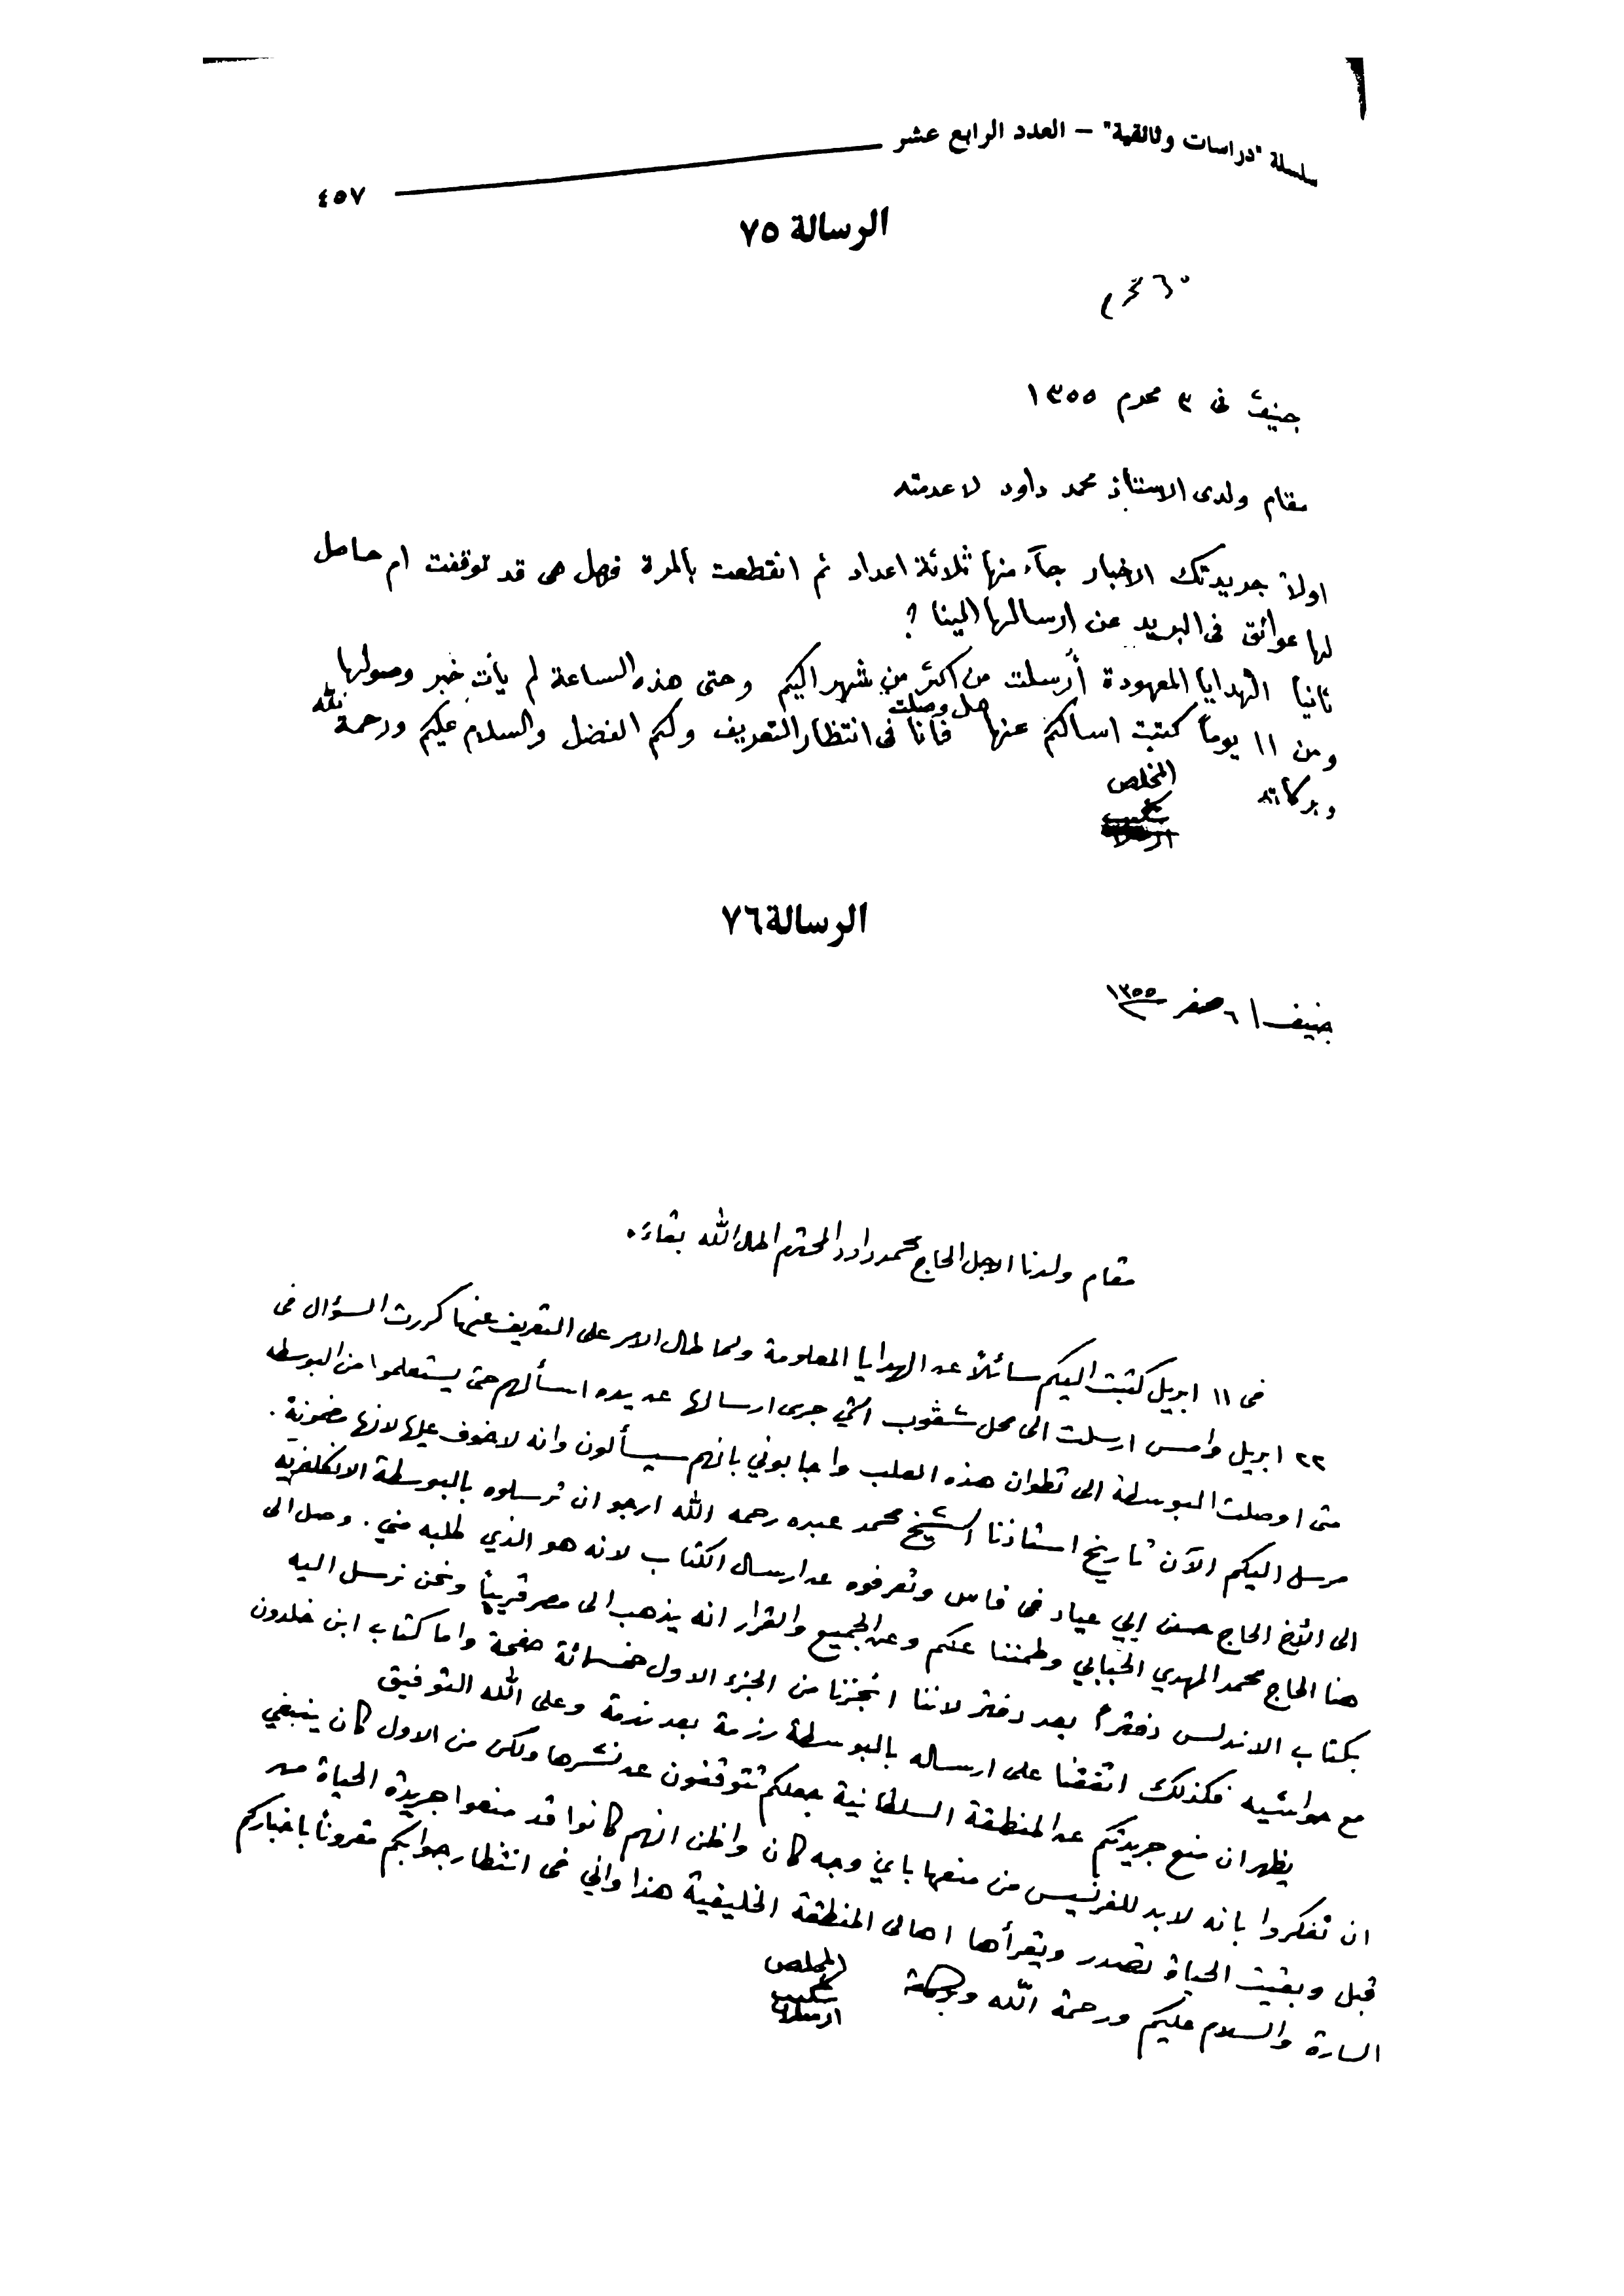 سلسلة "دراسات وثائقية" – العدد الرابع عشر
٤٥٧
الرسالة ٧٥
٦ محرم
جنيف فى ٣ محرم ١٣٥٥
مقام ولدى الاستاذ محمد داود لا عدمته
اولاً جريدتك الاخبار جآء منها ثلاثة اعداد ثم انقطعت بالمرة فهل هى قد توقفت ام حاصل
لها عوائق فى البريد عن ارسالها الينا ؟
ثانياً الهدايا المعهودة أُرسلت من اكثر من شهر اليكم وحتى هذه الساعة لم يأت خبر وصولها
ومن ١١ يوماً كتبت اسالكم عنها هل وصلت فانا فى انتظار التعريف ولكم الفضل والسلام عليكم ورحمة الله
وبركاته
المخلص
شكيب
ارسلان
الرسالة ٧٦
جنيف ٦ صفر ١٣٥٥
مقام ولدنا الاجل الحاج محمد داود المحترم اطال الله بقاءه
فى ١١ ابريل كتبت اليكم سائلاً عن الهدايا المعلومة ولما طال الامر على التعريف عنها كررت السؤال فى
٢٢ ابريل وامس ارسلت الى محل شقوب التي جرى ارسالها عن يده اسألهم حتى يستعلموا من البوسطه
متى اوصلت البوسطة الى تطوان هذه العلب واجابوني بانهم سيسألون وانه لا خوف عليها لانها مضمونة .
مرسل اليكم الآن تاريخ استاذنا الشيخ محمد عبده رحمه الله ارجو ان ترسلوه بالبوسطة الانكليزيه
الى الأخ الحاج حسن ابي عياد فى فاس وتعرفوه عن ارسال الكتاب لانه هو الذي طلبه مني . وصل الى
هنا الحاج محمد المهدي الحبابي وطمننا عنكم وعن الجميع والقرار انه يذهب الى مصر قريباً ونحن نرسل اليه
بكتاب الاندلس دفتراً بعد دفتر لاننا انجزنا من الجزء الاول خمسمائة صفحة واما كتاب ابن خلدون
مع حواشيه فكذلك اتفقنا على ارساله بالبوسطة رزمة بعد رزمة وعلى الله التوفيق
يظهر ان منع جريدتكم عن المنطقة السلطانية جعلكم تتوقفون عن نشرها ولكن من الاول كان ينبغي
ان تفكروا بانه لابد للفرنسيس من منعها باي وجه كان واظن انهم كانوا قد منعوا جريدة الحياة من
قبل وبقيت الحياة تصدر ويقرأها اهالى المنطقة الخليفية هذا واني فى انتظار جوابكم مقروناً باخباركم
السارة والسلام عليكم ورحمة الله وبركاته
المخلص
شكيب
ارسلان